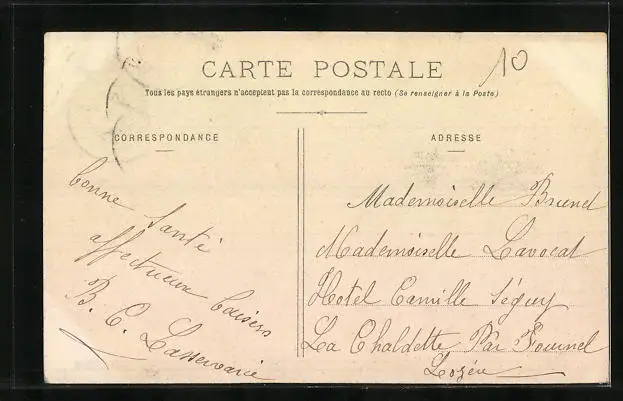 10
CARTE POSTALE
Tous les pays étrangers n'acceptent pas la correspondance au recto (Se renseigner à la Poste)
CORRESPONDANCE
bonne Santé
affectueux baisers
B. C.
ADRESSE
Mademoiselle Brunel
Mademoiselle Lavocat
Hotel Camille Séguy
La Chaldette Par Fournel
Lozère